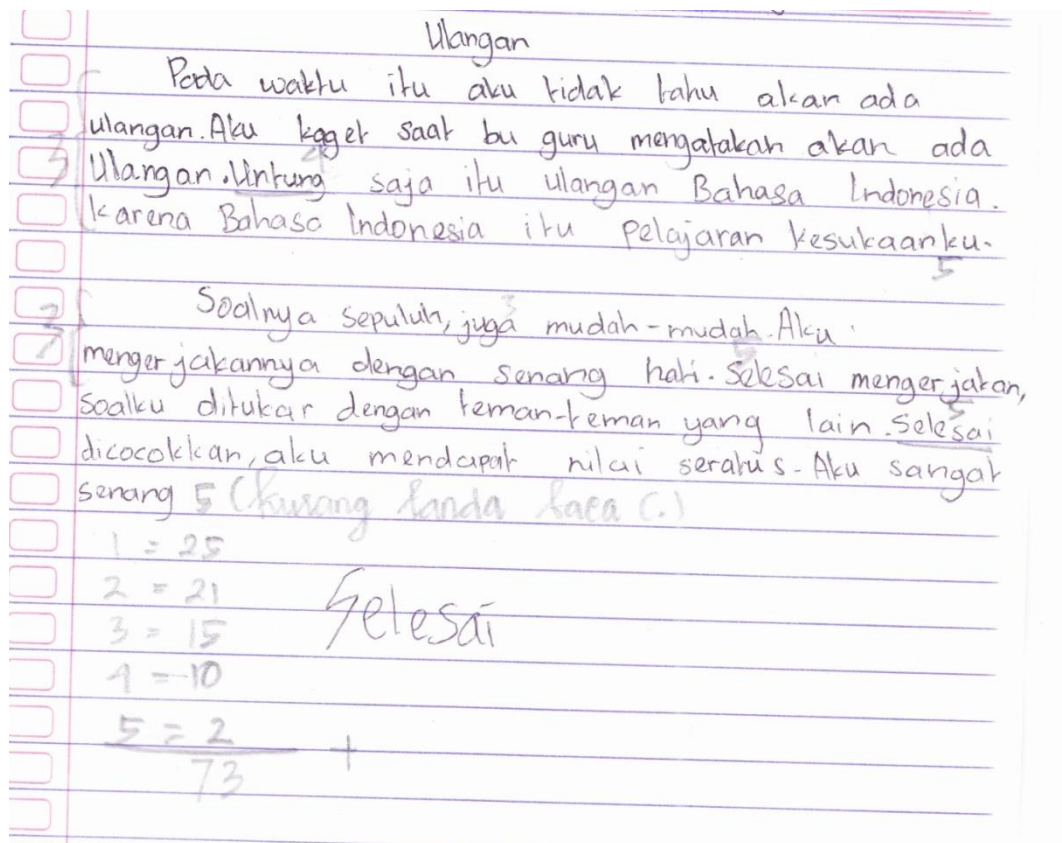 Ulangan
Pada waktu itu aku tidak tahu akan ada
ulangan. Aku kaget saat bu guru mengatakan akan ada
4
3 Ulangan. Untung saja itu ulangan Bahasa Indonesia.
Karena Bahasa Indonesia itu pelajaran kesukaanku.
5
3
3 Soalnya sepuluh, juga mudah-mudah. Aku
5
mengerjakannya dengan senang hati. Selesai mengerjakan,
5
soalku ditukar dengan teman-teman yang lain. Selesai
dicocokkan, aku mendapat nilai seratus. Aku sangat
senang 5 (kurang tanda baca (.)
1 = 25
2 = 21
Selesai
3 = 15
4 = 10
5 = 2
+
73